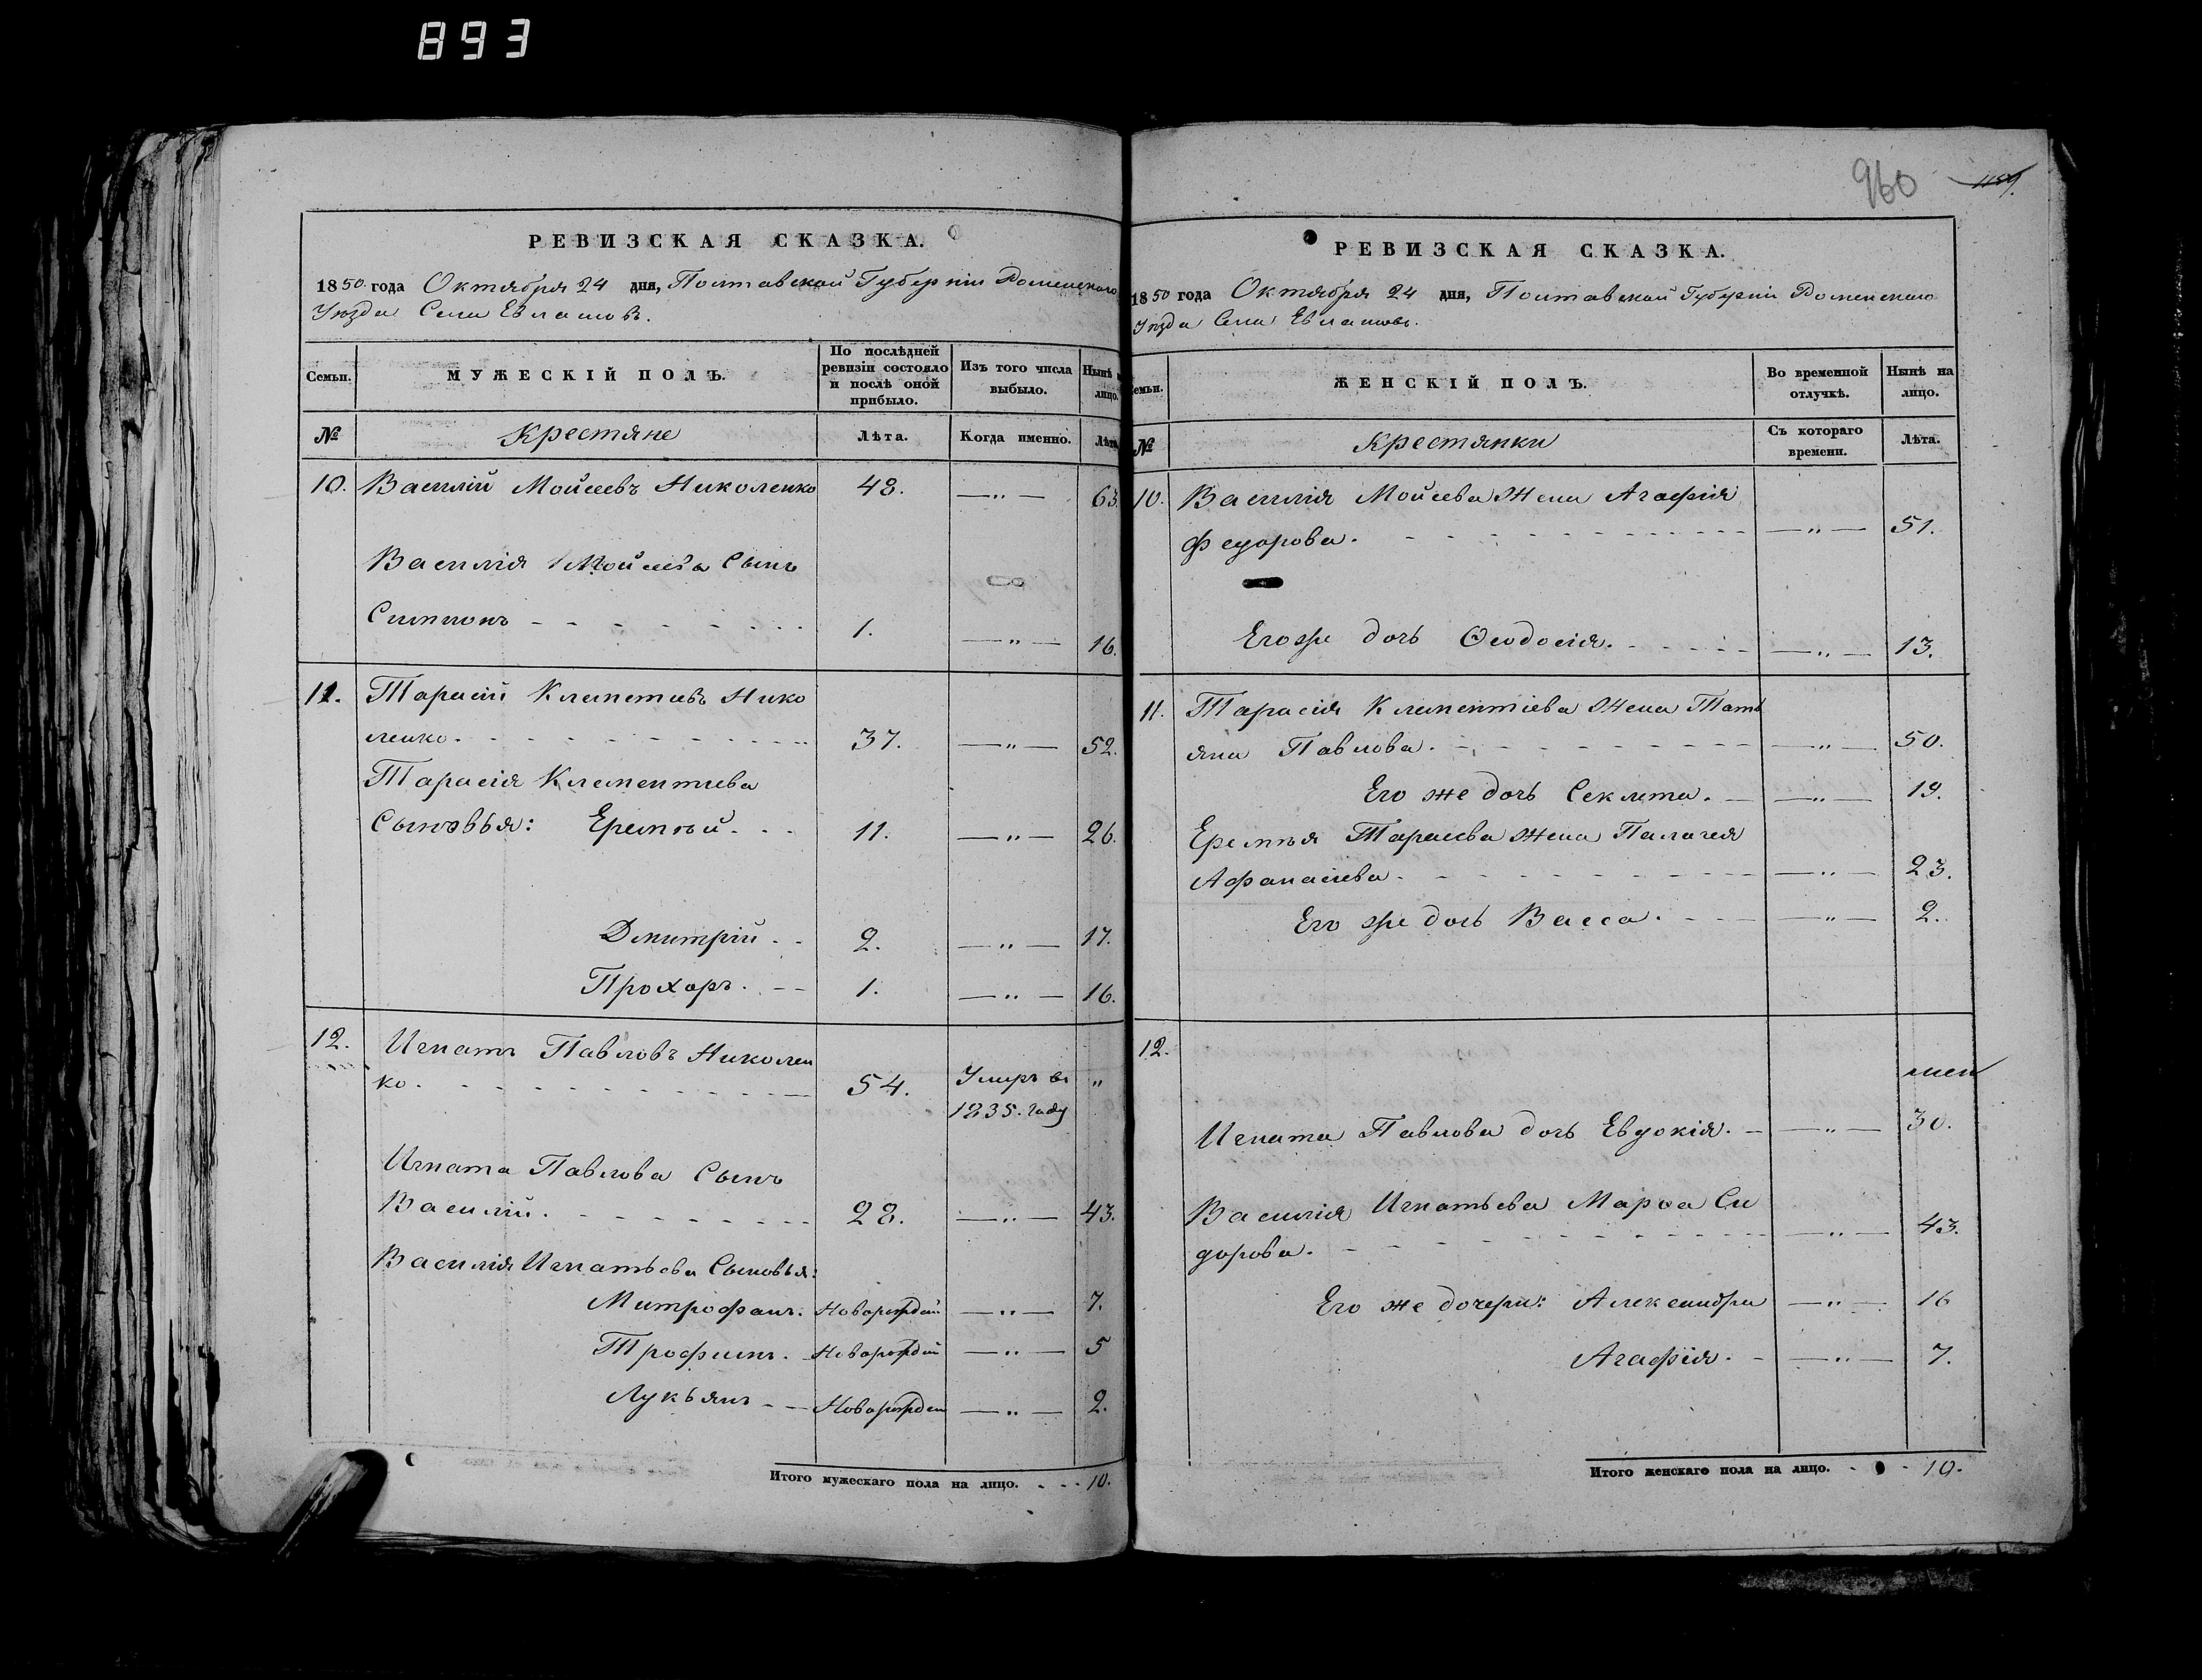 893
960
1159.
РЕВИЗСКАЯ СКАЗКА.
1850 года Октября 24 дня, Полтавской Губерніи Роменскаго
Уѣзда Села Евлашовъ.
Семьи.
МУЖЕСКІЙ ПОЛЪ.
По послѣдней ревизіи состояло и послѣ оной прибыло.
Изъ того числа выбыло.
Нынѣ на лицо.
№ Крестяне Лѣта. Когда именно. Лѣта
10. Василій Мойсеевъ Николенко 48. —„— 63.
Василія Мойсеева Сынъ
Симионъ 1. —„— 16.
11. Тарасій Клеметиевъ Нико
ленко. 37. —„— 52.
Тарасія Клементиева
Сыновья: Еремѣй. 11. —„— 26.
Дмитрій. 2. —„— 17.
Прохоръ. 1. —„— 16.
12. Игнатъ Павловъ Николен
ко. 54. Умеръ въ „
1835. году
Игната Павлова Сынъ
Василій. 28. —„— 43.
Василія Игнатьева Сыновья:
Митрофанъ. Новорожден —„— 7.
Трофимъ. Новорожден —„— 5
Лукьянъ Новорожден —„— 2.
Итого мужескаго пола на лицо. 10.
РЕВИЗСКАЯ СКАЗКА.
1850 года Октября 24 дня, Полтавской Губерніи Роменскаго
Уѣзда Села Евлашовъ.
Семьи.
ЖЕНСКІЙ ПОЛЪ.
Во временной отлучкѣ.
Нынѣ на лицо.
№ Крестянки Съ котораго времени. Лѣта.
10. Василія Мойсеева Жена Агафія
Федорова. —„— 51.
Его же дочь Ѳеодосія. —„— 13.
11. Тарасія Клементіева Жена Тать
яна Павлова. —„— 50.
Его же дочь Секлета. —„— 19.
Еремѣя Тарасева Жена Палагея
Афанасиева. —„— 23.
Его же дочь Васса. —„— 2.
12.
Игната Павлова дочь Евдокія. —„— 30.
Василія Игнатьева Марѳа Си
дорова. —„— 43.
Его же дочери: Александра —„— 16
Агафія. —„— 7.
Итого женскаго пола на лицо. 10.